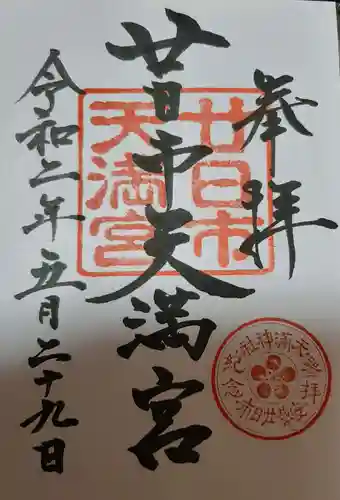 奉拝
廿日市天満宮
令和二年五月二十九日
廿日市
天満宮